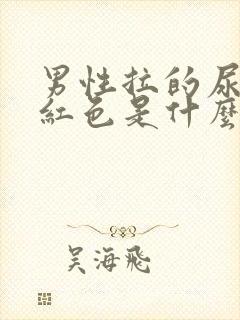 男性拉的尿
紅色是什麼
吴海飛